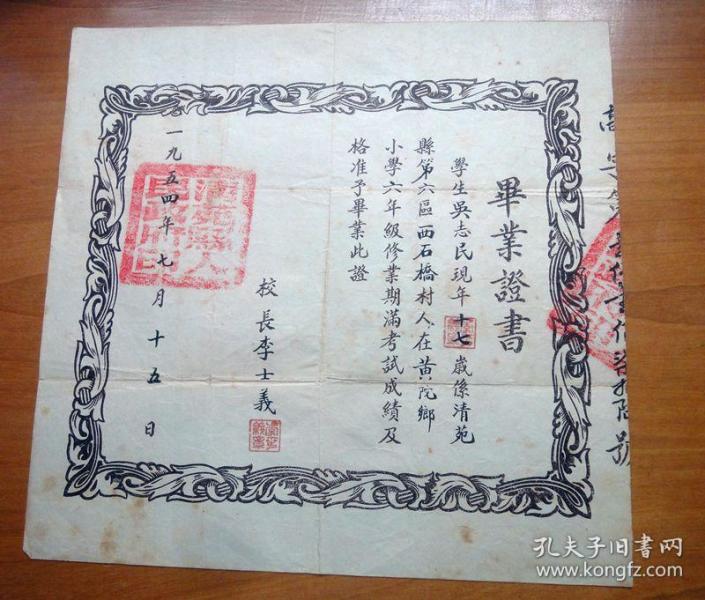 畢業證書
學生吳志民現年十七歲係清苑
縣第六區西石橋村人在黃院鄉
小學六年級修業期滿考試成績及
格准予畢業此證
校長李士義
一九五四年七月十五日
孔夫子旧书网
www.kongfz.com